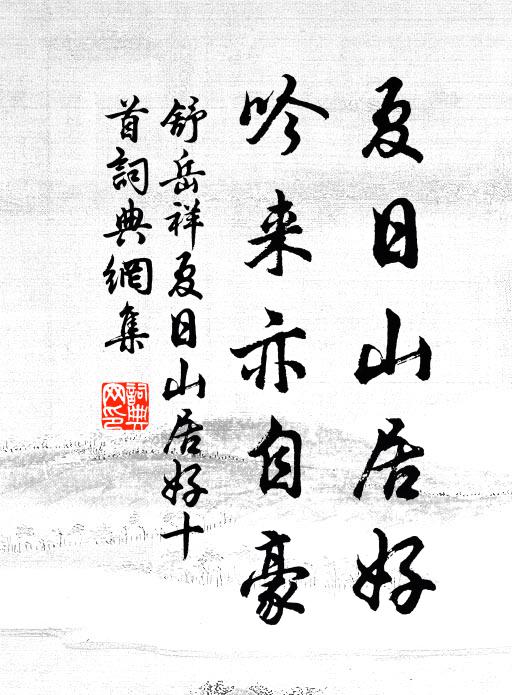 夏日山居好
吟来亦自豪
舒岳祥夏日山居好十
首詞典網集
詞典
网印